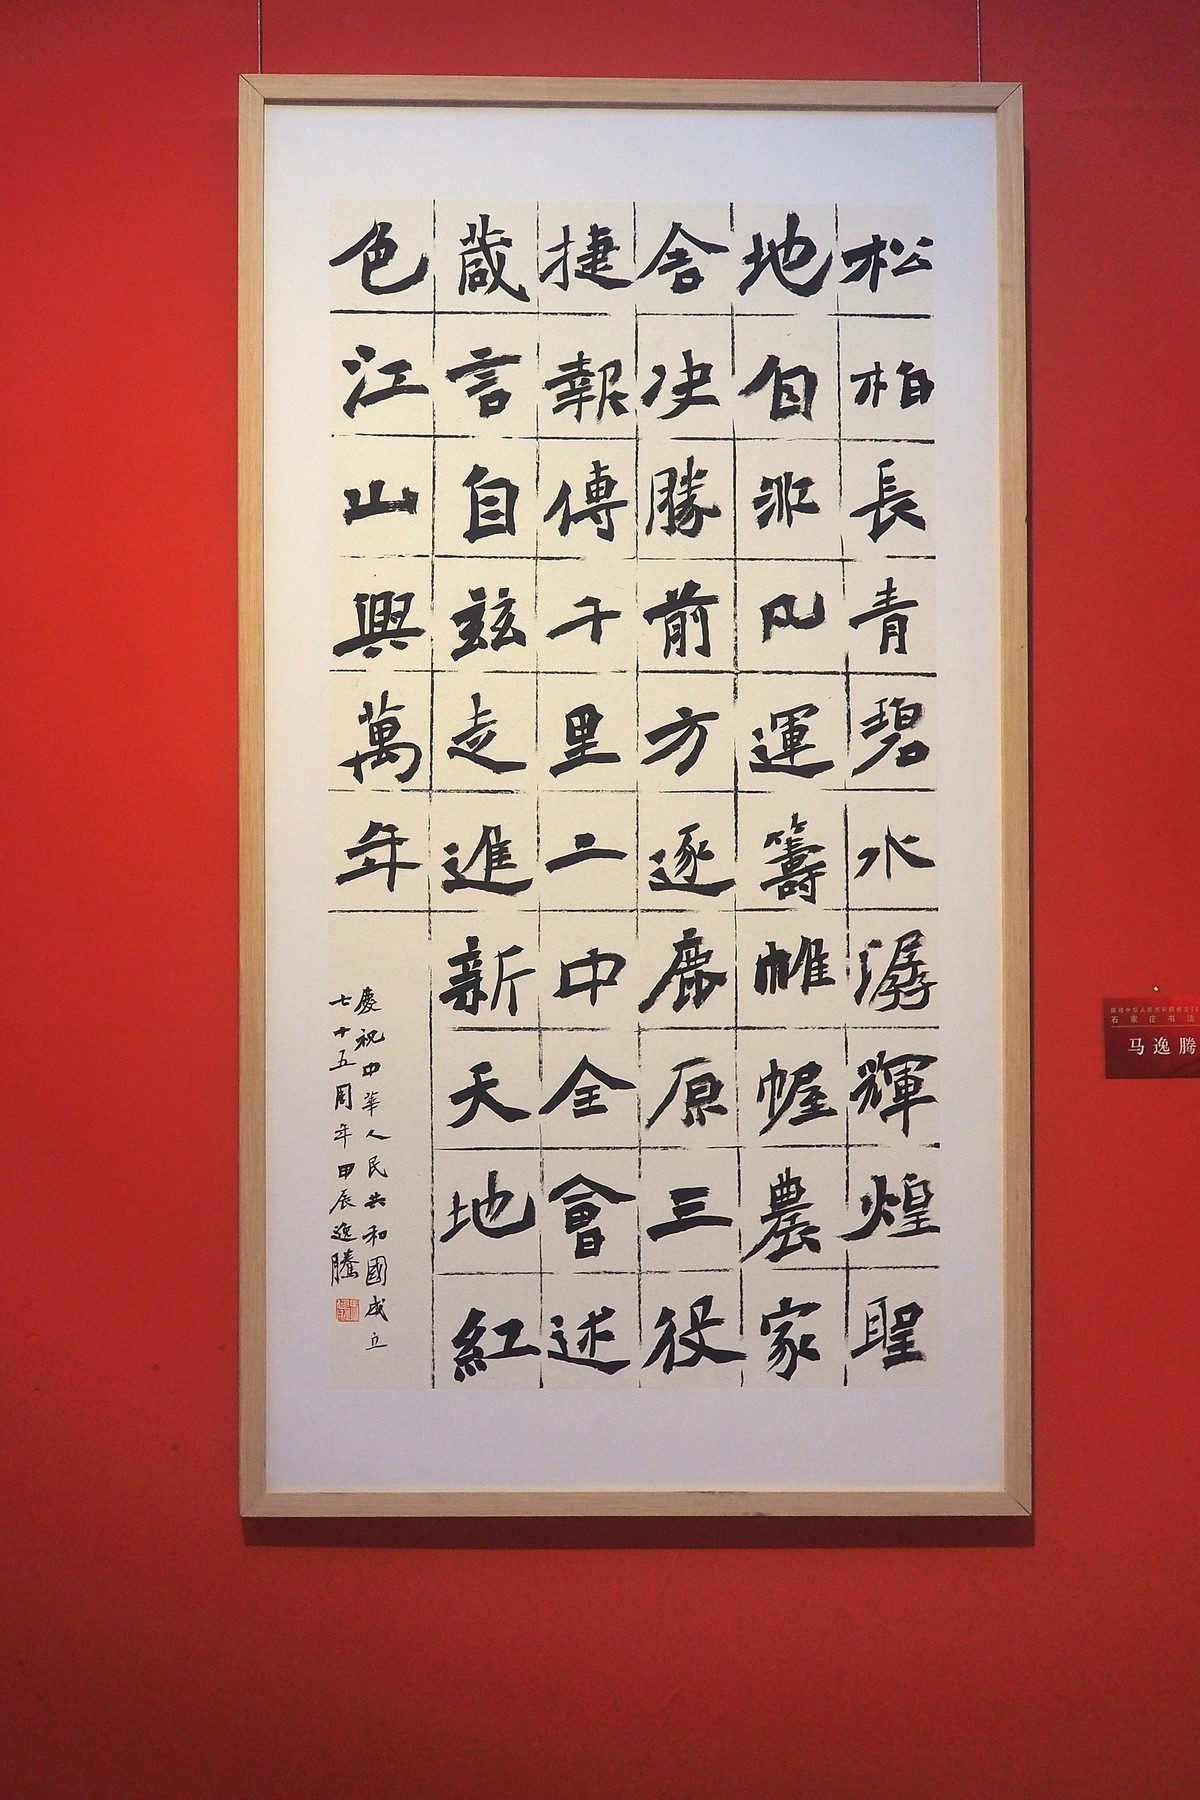 松柏長青碧水潺輝煌聖
地自非凡運籌帷幄農家
舍决勝前方逐鹿原三役
捷報傳千里二中全會述
箴言自兹走進新天地紅
色江山興萬年
慶祝中華人民共和國成立
七十五周年甲辰逸騰
石家庄书法
马逸腾